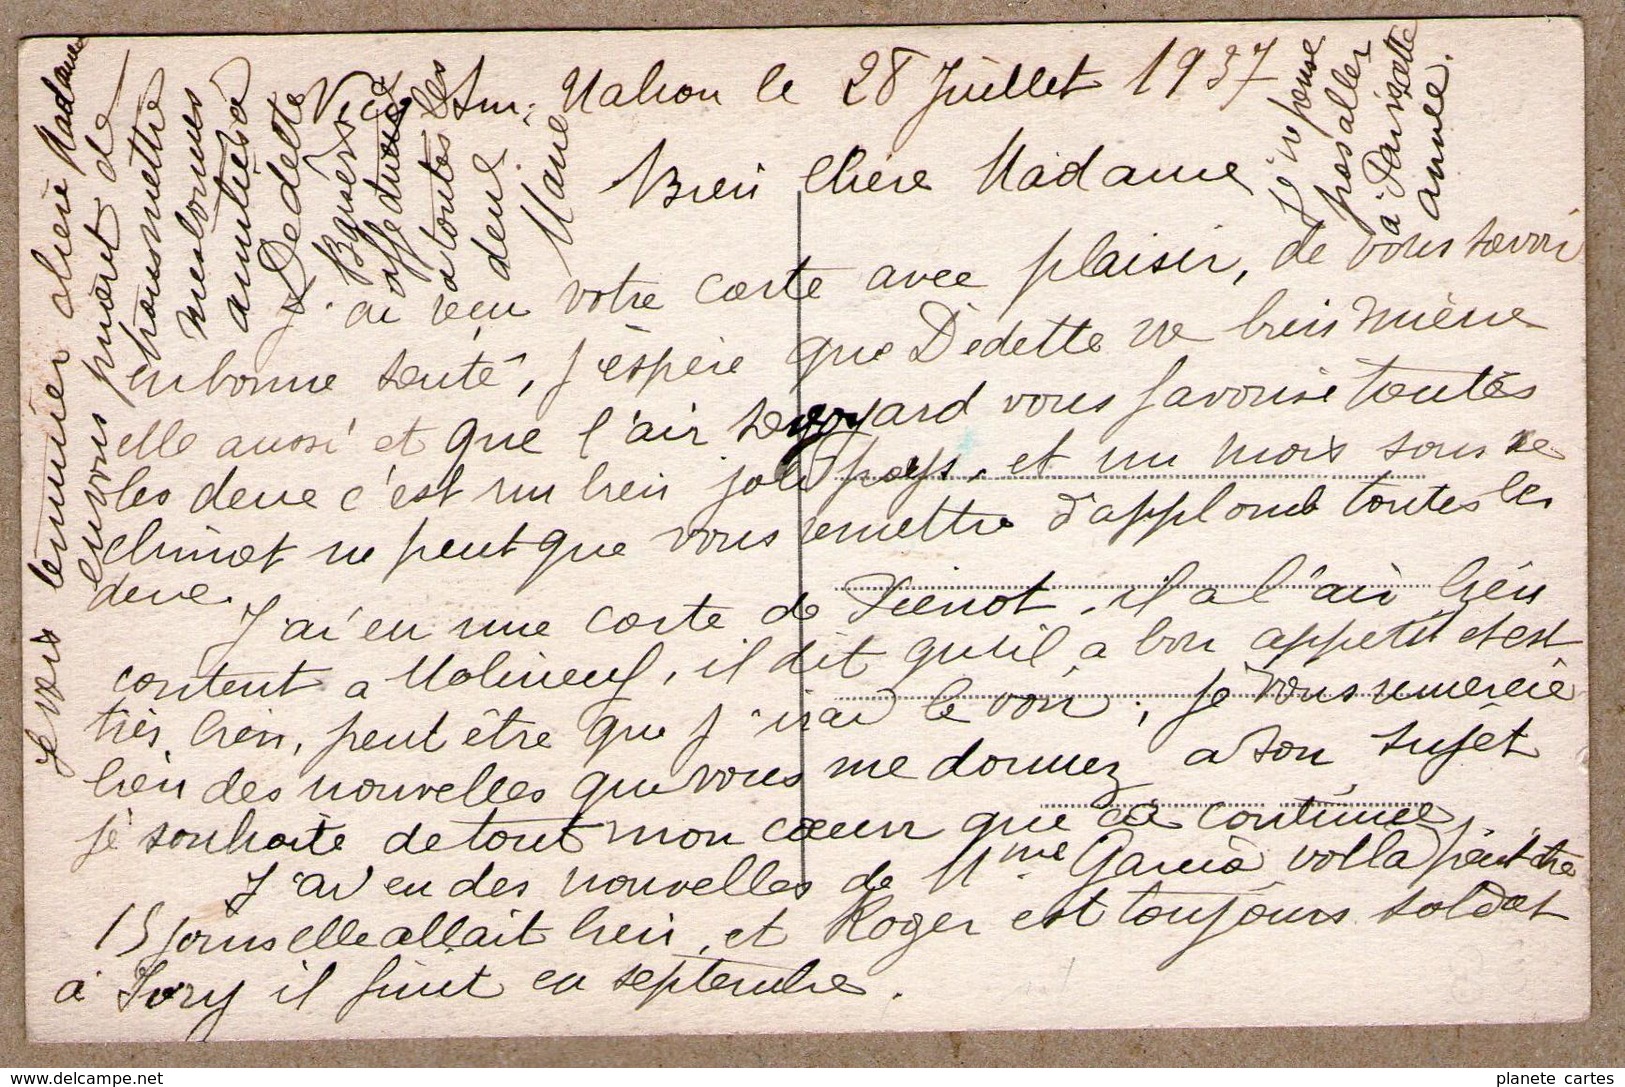 Vic Sur, Nahon le 28 Juillet 1937
Bien Chère Madame
J'ai reçu votre carte avec plaisir, de vous savoir
en bonne santé, j'éspère que Dédette va bien même
elle aussi et que l'air savoyard vous favorise toutes
les deux c'est un bien joli pays, et un mois sous ce
climat ne peut que vous remettre d'applomb toutes les
deux.
J'ai eu une carte de Pierrot, il a l'air bien
content a Molineuf, il dit qu'il a bon appetit et est
très bien, peut être que j'irai le voir, je vous remercie
bien des nouvelles que vous me donnez a son sujet
je souhaite de tout mon cœur que ca continue
J'ai eu des nouvelles de Mme Garcia voila peut etre
15 jours elle allait bien, et Roger est toujours soldat
à Ivry il finit en septembre.
Je vais terminer chère Madame
en vous priant de
transmettre
mes bonnes
amitiés à
Dedette
Baisers
affectueux
a toutes les
deux
Marie
Je ne pense
pas aller
à Paris cette
année.
planete cartes